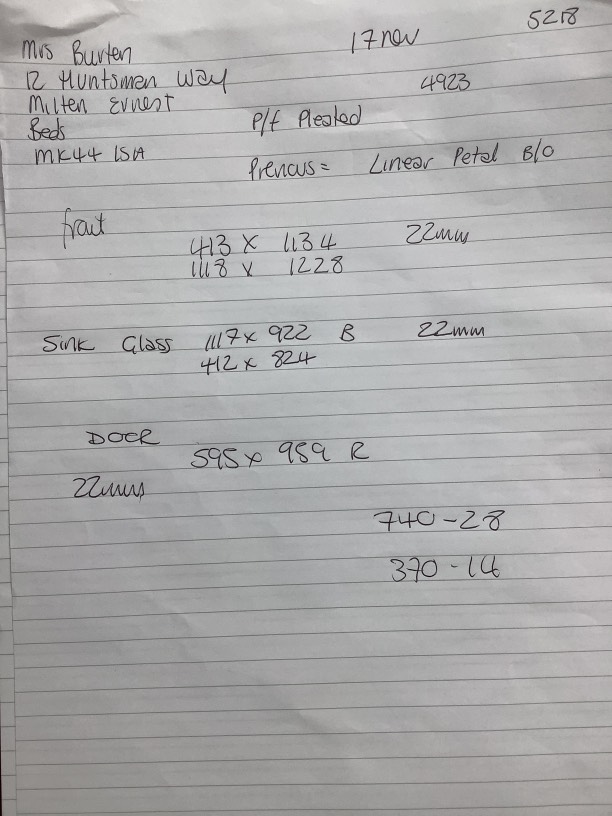 5218
17 nov
Mrs Burten
12 Huntsman Way
4923
Milten Ernest
Beds
P/f Pleated
MK44 1SA
Prencus = Linear Petal B/O
front
413 x 1134 22mm
1118 x 1228
Sink Glass 1117 x 922 B 22mm
412 x 824
DOOR
595 x 959 R
22mm
740 - 28
370 - 14